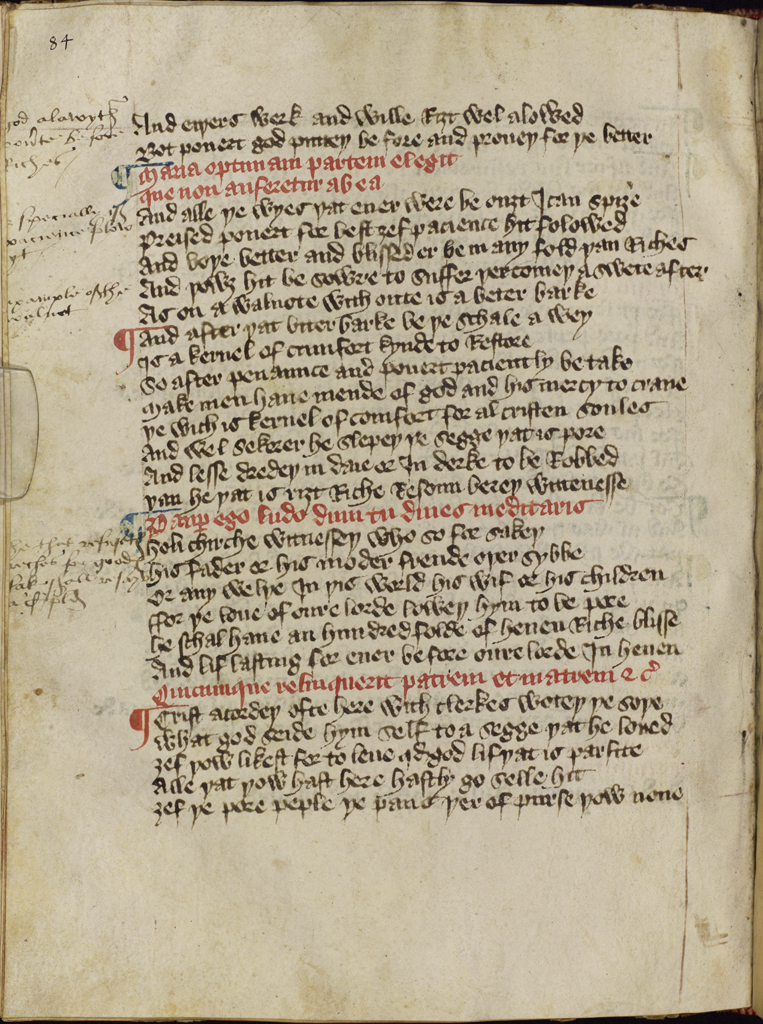 84
And eyers werk and wille Rizt wel alowed
Bot pouert god puttey be fore and prouey for ye better
Maria optimam partem elegit
que non auferetur ab ea
And alle ye wyes yat euer were be ouzt I can spize
Preised pouert for best zef pacience hit folowed
And boye better and blisseder be many fold yan Riches
And yowz hit be sowre to suffer yer comey a swete after
As on a walnote with oute is a beter barke
And after yat biter barke be ye schale a wey
Is a kernel of cumfort kynde to Restore
So after penaunce and pouert pacient ly be take
Make men haue mende of god and his mercy to craue
ye wich is kernel of comfort for al cristen soules
And wel sekerer he slepey ye segge yat is pore
And lesse dredey in daie or In derke to be Robbed
yan he yat is rizt Riche Resoun berey wittenesse
Pauper ego ludo dum tu diues meditaris
Holi chirche witnessey who so for sakey
his fader or his moder frende oyer sybbe
Or any welye In yis world his wif or his children
For ye loue of oure lorde lowey hym to be pore
he schal haue an hundred folde of heuen Riche blisse
And lif lasting for euer be fore oure lorde In heuen
Quicumque relinquerit patrem et matrem & cͥ
Crist acordey ofte here with clerkes wetey ye soye
What god seide hym self to a segge yat he loued
zef yow likest for to leue qd god lif yat is parfite
Alle yat yow hast here hastly go selle hit
zef ye pore peple ye pans yer of purse yow none
god alowyth
be fore
Riches
specially
pacience
yt
example of the
walnot
he that